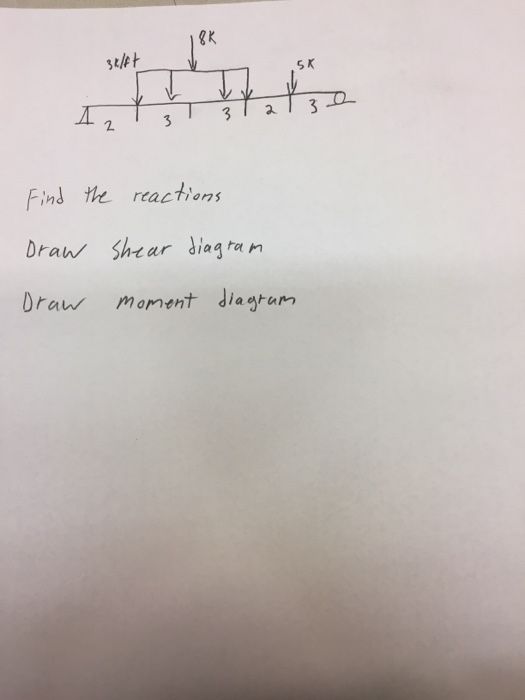 8K
3K/ft
5K
2 3 3 2 3
Find the reactions
Draw Shear diagram
Draw moment diagram